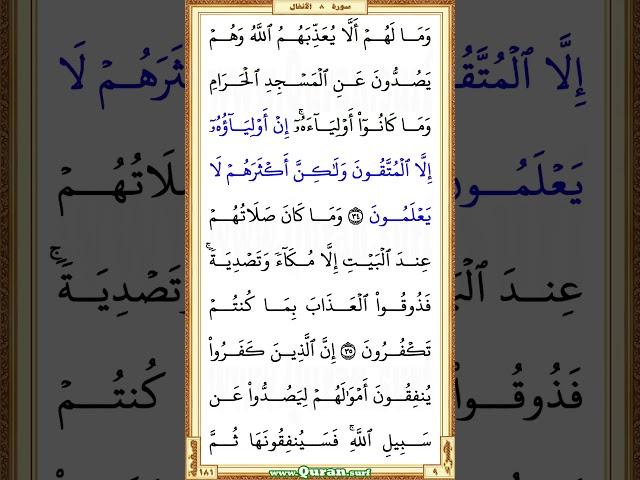 سورة ٨ الأنفال
وَمَا لَهُمْ أَلَّا يُعَذِّبَهُمُ ٱللَّهُ وَهُمْ
يَصُدُّونَ عَنِ ٱلْمَسْجِدِ ٱلْحَرَامِ
وَمَا كَانُوٓا۟ أَوْلِيَآءَهُۥٓ ۚ إِنْ أَوْلِيَآؤُهُۥٓ
إِلَّا ٱلْمُتَّقُونَ وَلَـٰكِنَّ أَكْثَرَهُمْ لَا
يَعْلَمُونَ ٣٤ وَمَا كَانَ صَلَاتُهُمْ
عِندَ ٱلْبَيْتِ إِلَّا مُكَآءً وَتَصْدِيَةً ۚ
فَذُوقُوا۟ ٱلْعَذَابَ بِمَا كُنتُمْ
تَكْفُرُونَ ٣٥ إِنَّ ٱلَّذِينَ كَفَرُوا۟
يُنفِقُونَ أَمْوَٰلَهُمْ لِيَصُدُّوا۟ عَن
سَبِيلِ ٱللَّهِ ۚ فَسَيُنفِقُونَهَا ثُمَّ
صفحة ١٨١ www.Quran.surf ٩ جزء